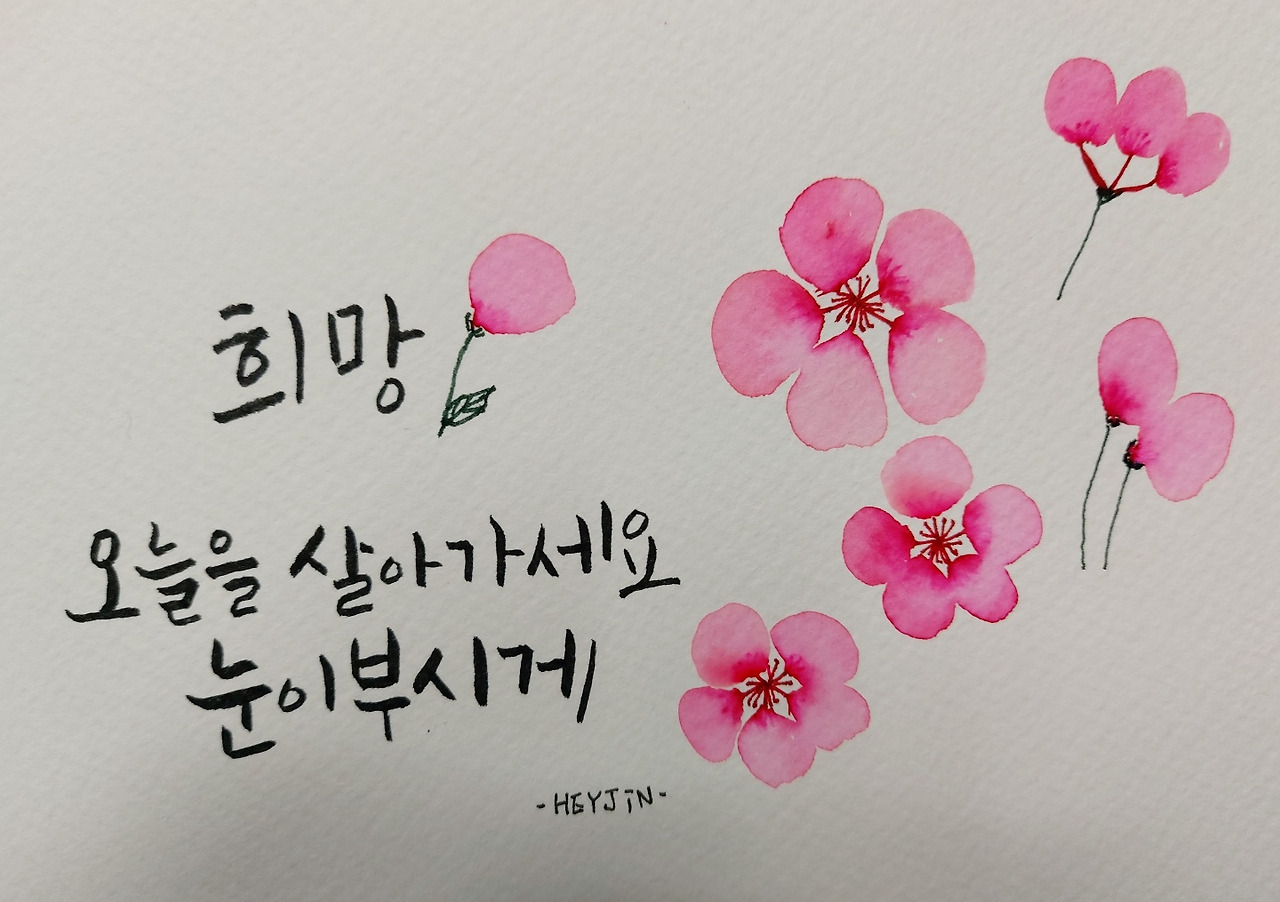 희망
오늘을 살아가세요
눈이부시게
-HEYJiN-